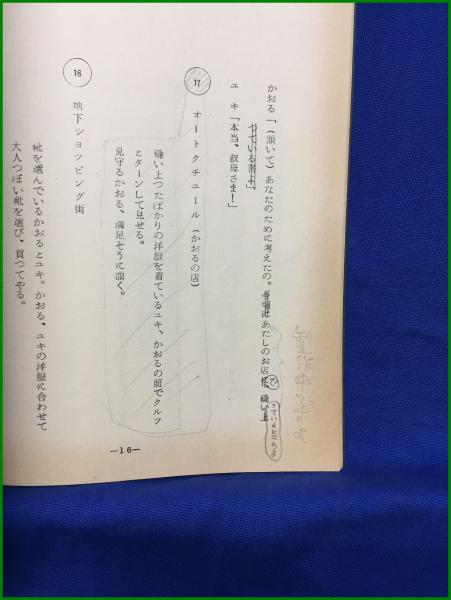 かおる「(頷いて)あなたのために考えたの。今頃はあたしのお店で、縫い上
つている筈よ」
ユキ「本当、叔母さま!」
17 オートクチユール(かおるの店)
縫い上つたばかりの洋服を着ているユキ、かおるの前でクルツ
とターンして見せる。
見守るかおる、満足そうに頷く。
18 地下ショッピング街
靴を選んでいるかおるとユキ。かおる、ユキの洋服に合わせて
大人つぽい靴を選び、買つてやる。
—16—